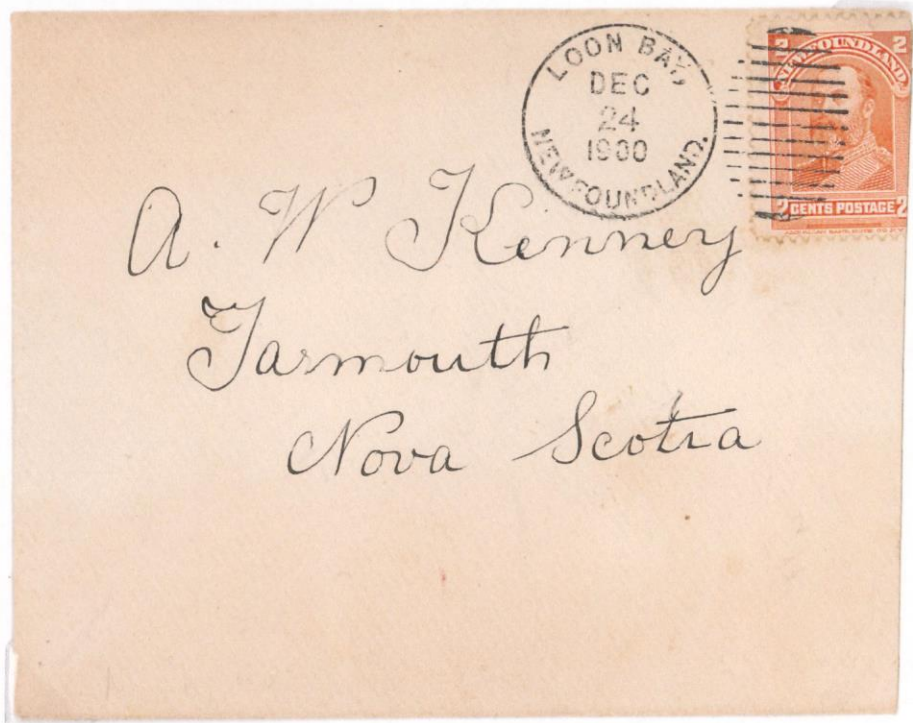 LOON BAY,
DEC
24
1900
NEWFOUNDLAND.
2 NEWFOUNDLAND 2
2 CENTS POSTAGE 2
A. W Kenney
Yarmouth
Nova Scotia